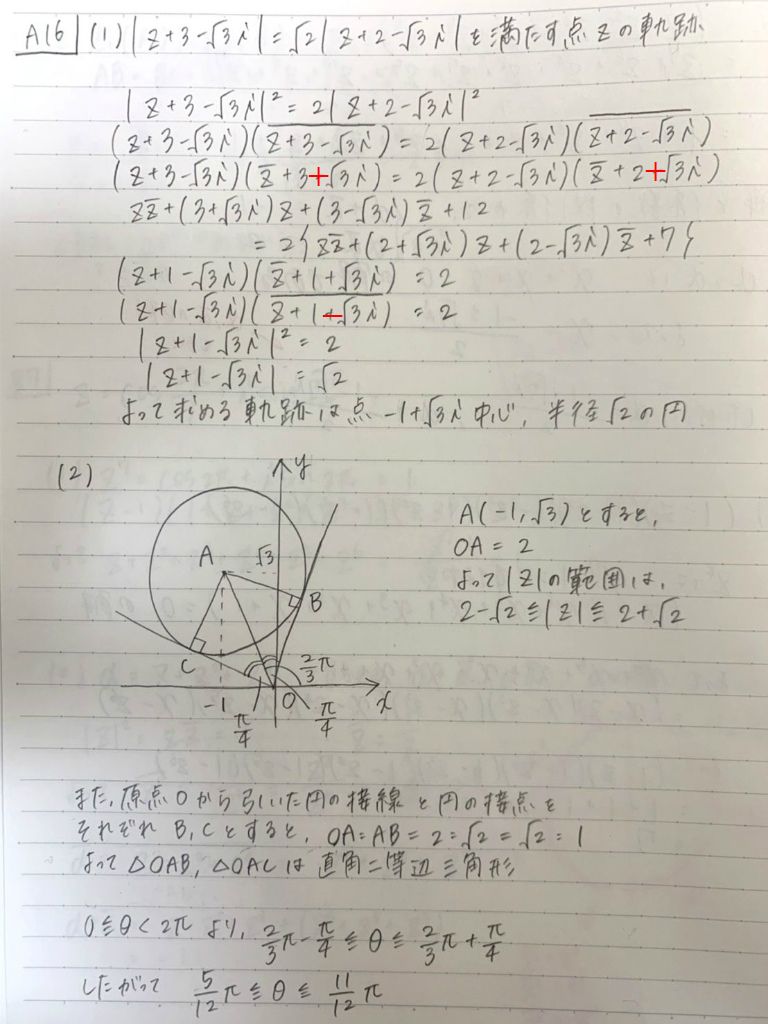 A16 (1) |z+3-√3i|=√2|z+2-√3i|を満たす点zの軌跡
|z+3-√3i|²=2|z+2-√3i|²
(z+3-√3i)(\overline{z+3-√3i})=2(z+2-√3i)(\overline{z+2-√3i})
(z+3-√3i)(z̄+3+√3i)=2(z+2-√3i)(z̄+2+√3i)
zz̄+(3+√3i)z+(3-√3i)z̄+12
=2{zz̄+(2+√3i)z+(2-√3i)z̄+7}
(z+1-√3i)(z̄+1+√3i)=2
(z+1-√3i)(\overline{z+1-√3i})=2
|z+1-√3i|²=2
|z+1-√3i|=√2
よって求める軌跡は点-1+√3i中心, 半径√2の円
(2)
y
A
√3
B
C
2/3π
-1
O
x
π/4
π/4
A(-1,√3)とすると,
OA=2
よって|z|の範囲は,
2-√2≦|z|≦2+√2
また, 原点Oから引いた円の接線と円の接点を
それぞれB,Cとすると, OA:AB=2:√2=√2:1
よって△OAB, △OACは直角二等辺三角形
0≦θ<2πより, 2/3π-π/4≦θ≦2/3π+π/4
したがって 5/12π≦θ≦11/12π